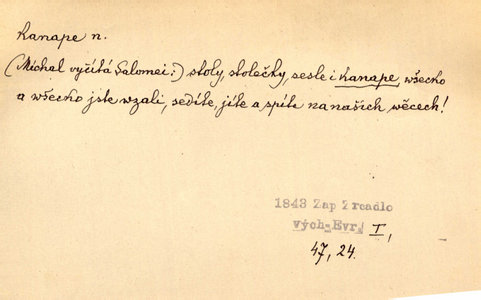 Kanape n.
(Michal vyčítá Salomei:) stoly, stolečky, sesle i kanape, wšecko
a wšecko jste wzali, sedíte, jíte a spíte na našich wěcech!
1843 Zap Zrcadlo
vých. Evr. I,
47, 24.